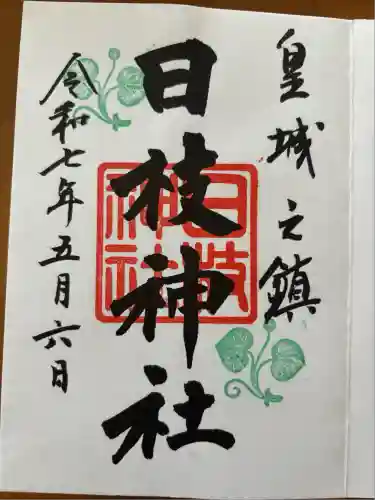 皇城之鎮
日枝神社
令和七年五月六日
日枝神社